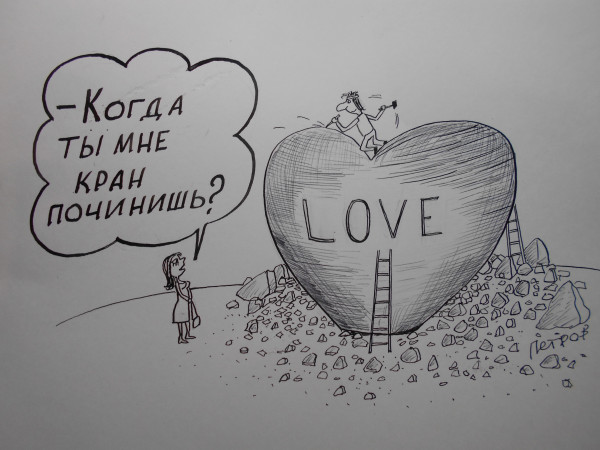 -Когда
ты мне
кран
починишь?
LOVE
Петров